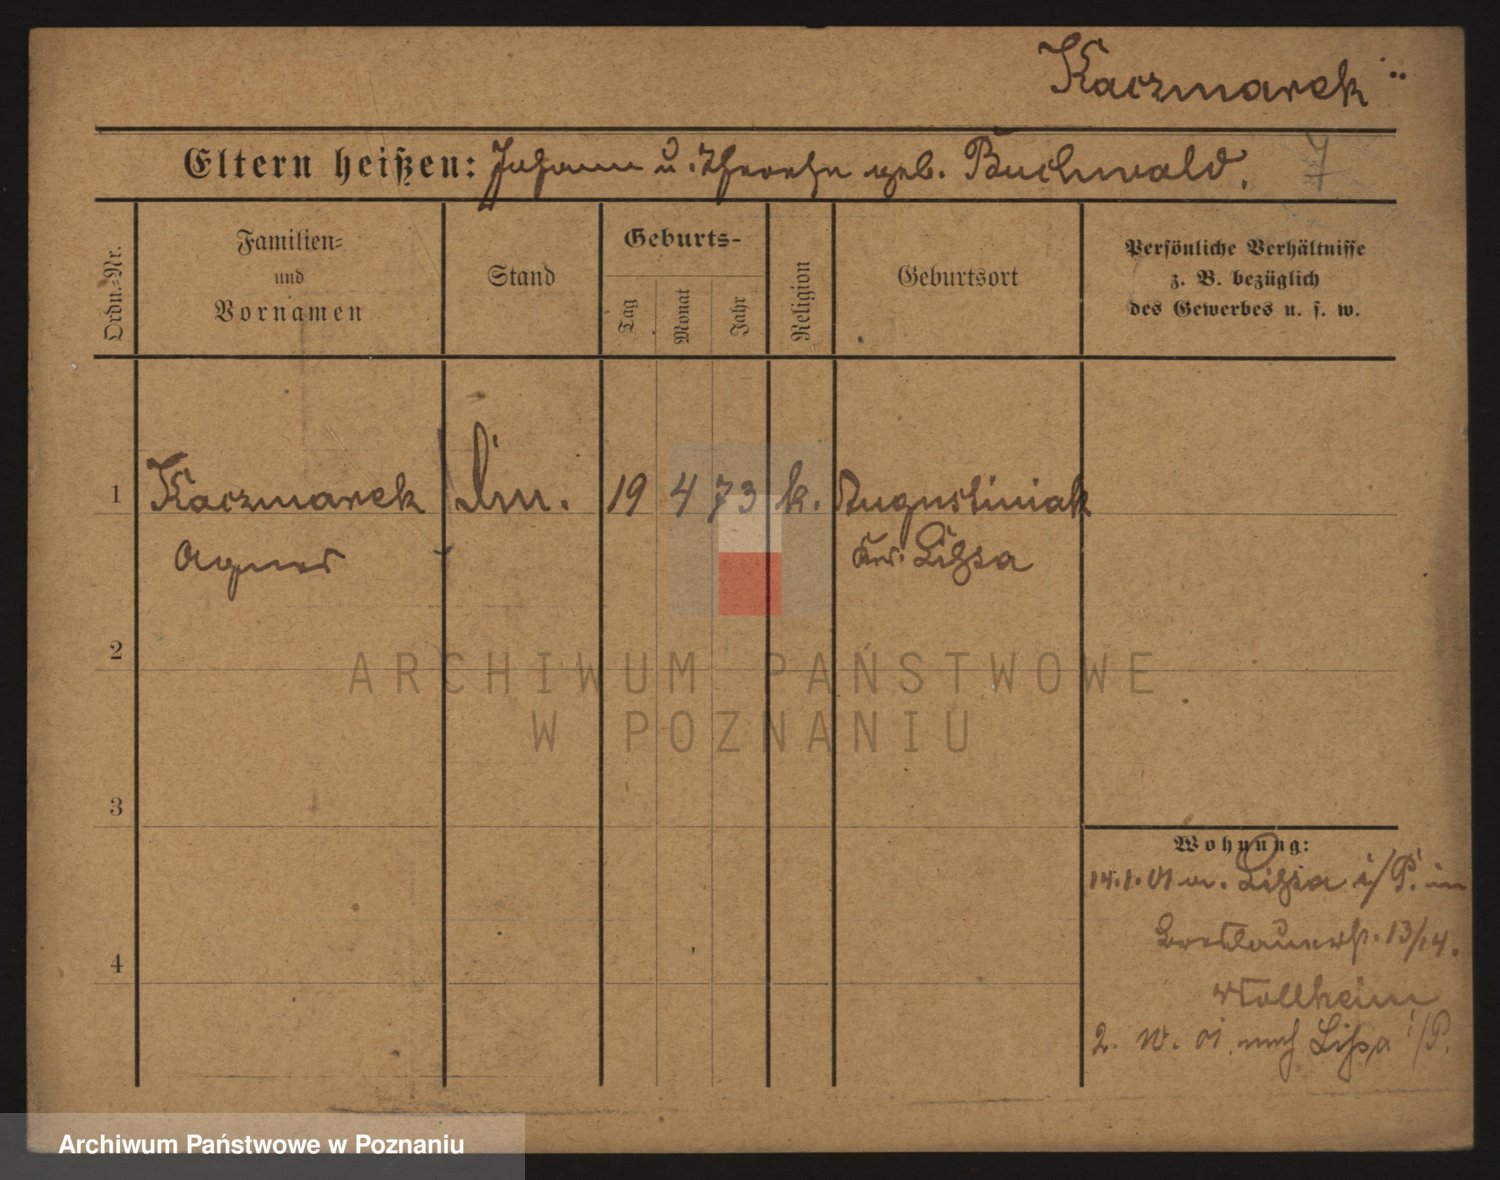 Kaczmarek
Eltern heißen: Johann u. Therese geb. Buchwald. 7
Ordn.-Nr.
Familien-
und
Vornamen
Stand
Geburts-
Tag
Monat
Jahr
Religion
Geburtsort
Persönliche Verhältnisse
z. B. bezüglich
des Gewerbes u. s. w.
1 Kaczmarek 19 4 73 k. Augustiniak
Agnes Kr. Lissa
2
3
4
Wohnung:
14.1.01 v. Lissa i/P. in
Breslauerstr. 13/14.
Wollheim
2. 10. 01 nach Lissa i/P.
ARCHIWUM PAŃSTWOWE
W POZNANIU
Archiwum Państwowe w Poznaniu